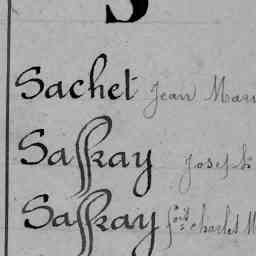 S
Sachet Jean Mari
Saſkay Joseph
Saſkay fois Charles M